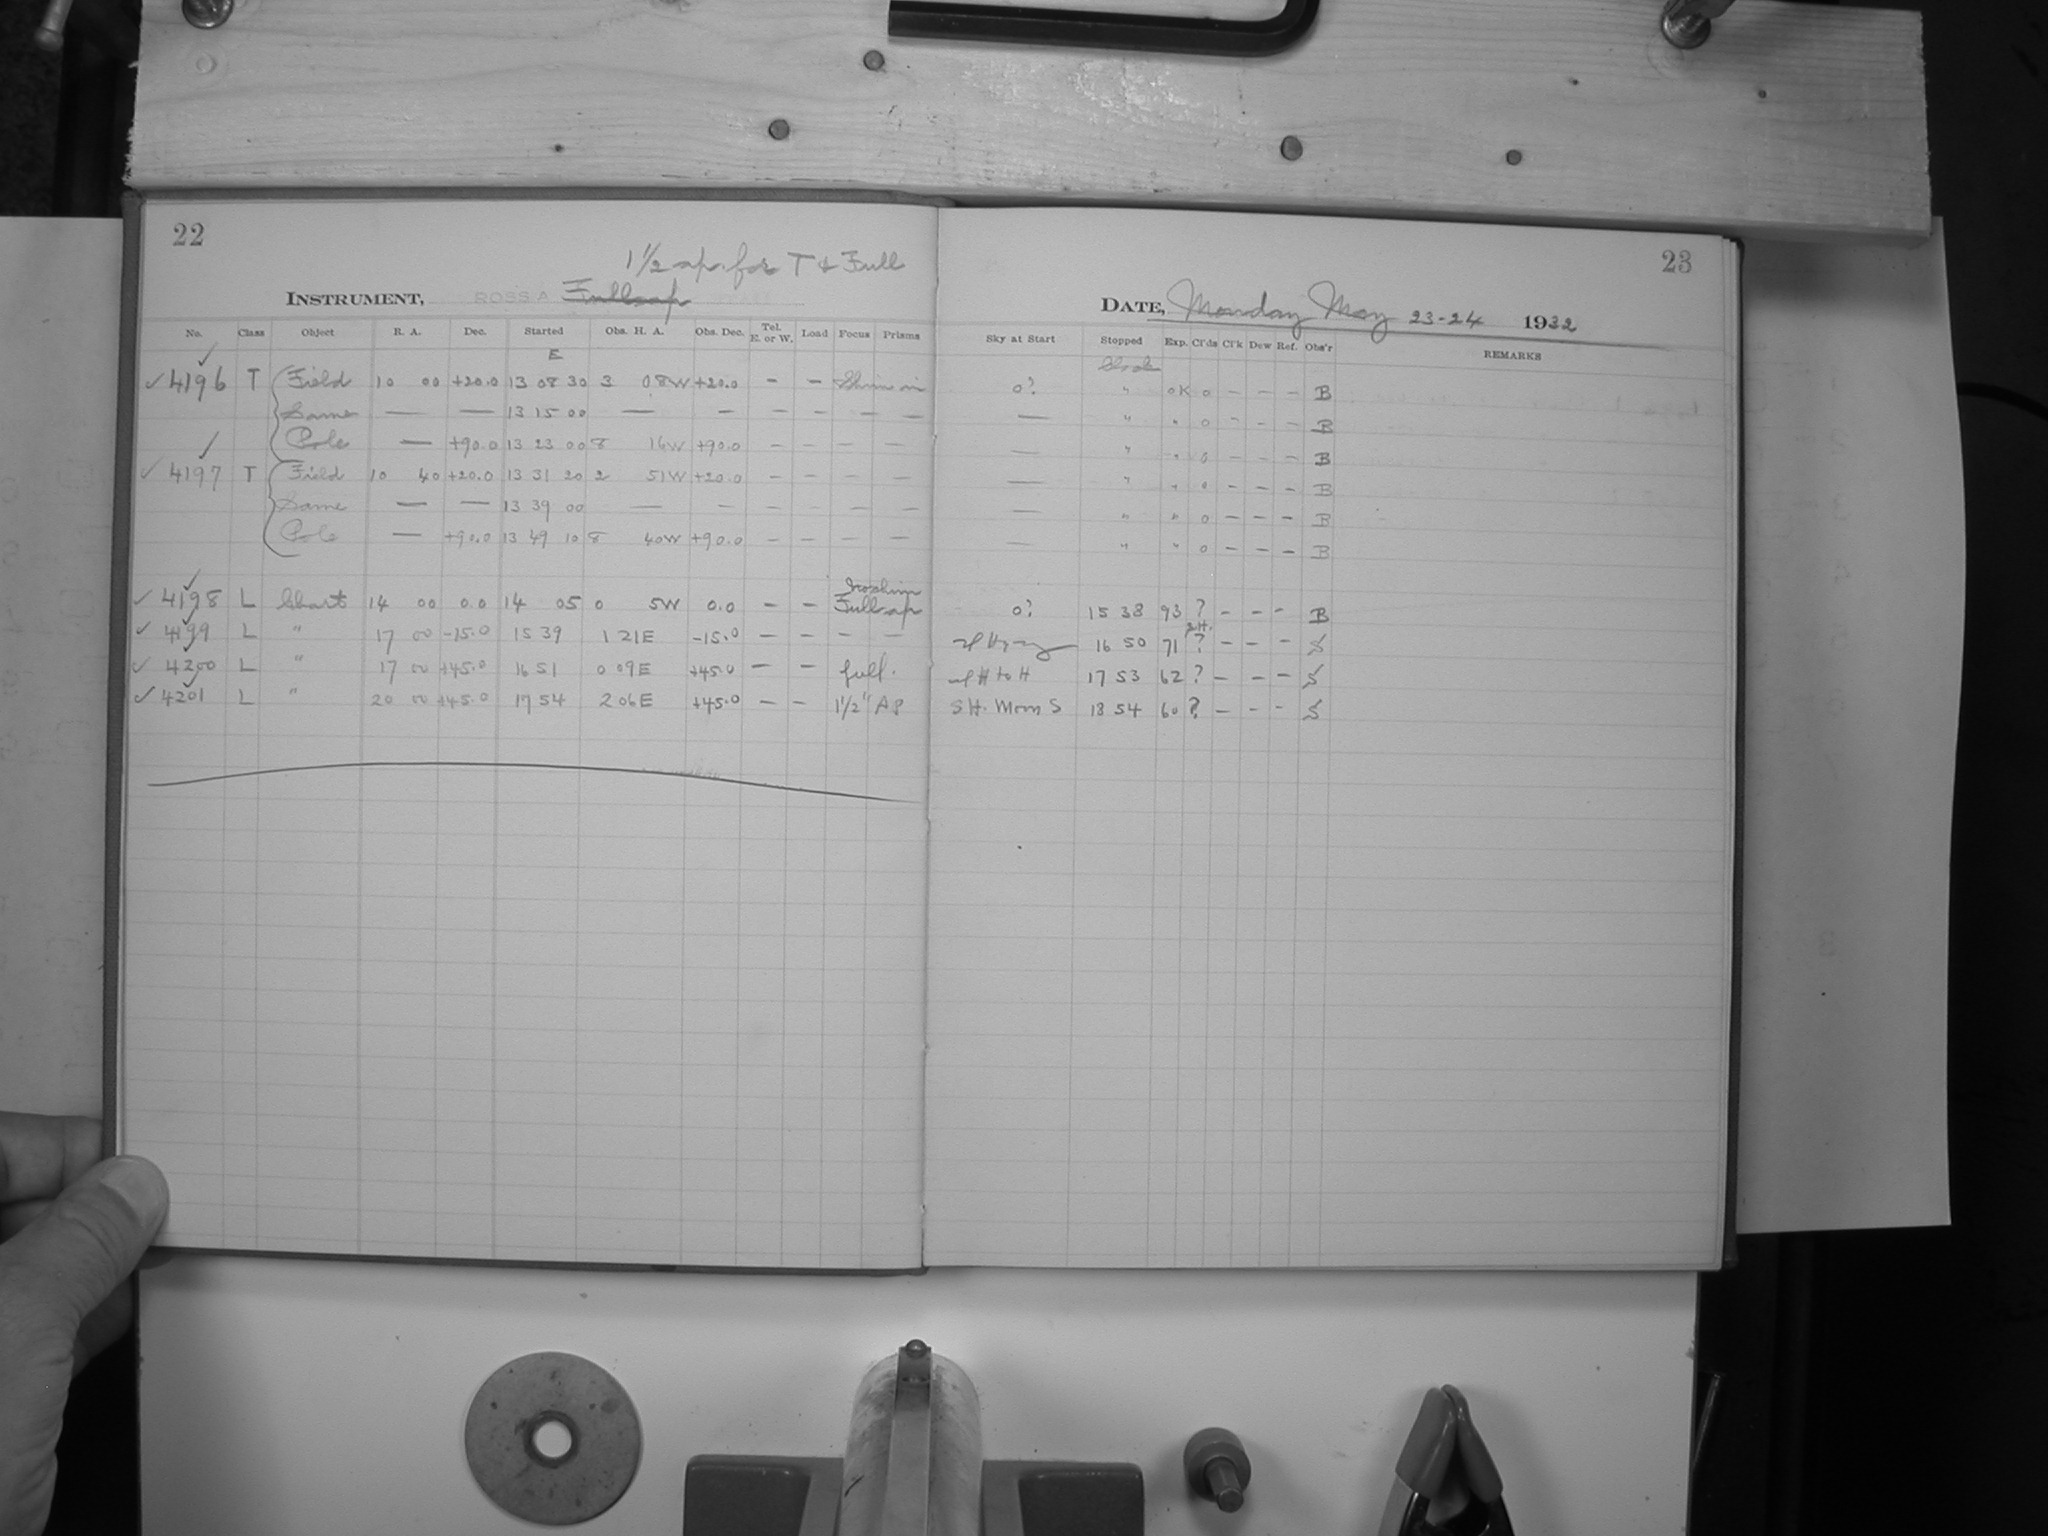 22
1 1/2 ap. for T & Full
INSTRUMENT, ROSS A Full ap
No. Class Object R. A. Dec. Started Obs. H. A. Obs. Dec. Tel. E. or W. Load Focus Prisms
E
✓ 4196 T Field 10 00 +20.0 13 08 30 3 08W +20.0 — — Shim in
Same — — 13 15 00 — — — — — —
Pole — +90.0 13 23 00 8 16W +90.0 — — — —
✓ 4197 T Field 10 40 +20.0 13 31 20 2 51W +20.0 — — — —
Same — — 13 39 00 — — — — — —
Pole — +90.0 13 49 10 8 40W +90.0 — — — —
✓ 4198 L Chart 14 00 0.0 14 05 0 5W 0.0 — — Full ap
✓ 4199 L " 17 00 -15.0 15 39 1 21E -15.0 — — — —
✓ 4200 L " 17 00 +45.0 16 51 0 09E +45.0 — — full.
✓ 4201 L " 20 00 +45.0 17 54 2 06E +45.0 — — 1 1/2" Ap
23
DATE, Monday May 23-24 1932
Sky at Start Stopped Exp. Cl'ds Cl'k Dew Ref. Obs'r REMARKS
0? " OK 0 — — — B
— " " 0 — — — B
— " " 0 — — — B
— " " 0 — — — B
— " " 0 — — — B
— " " 0 — — — B
0? 15 38 93 ? — — — B
16 50 71 ? — — — S
H to H 17 53 62 ? — — — S
SH. Moon S 18 54 60 ? — — — S